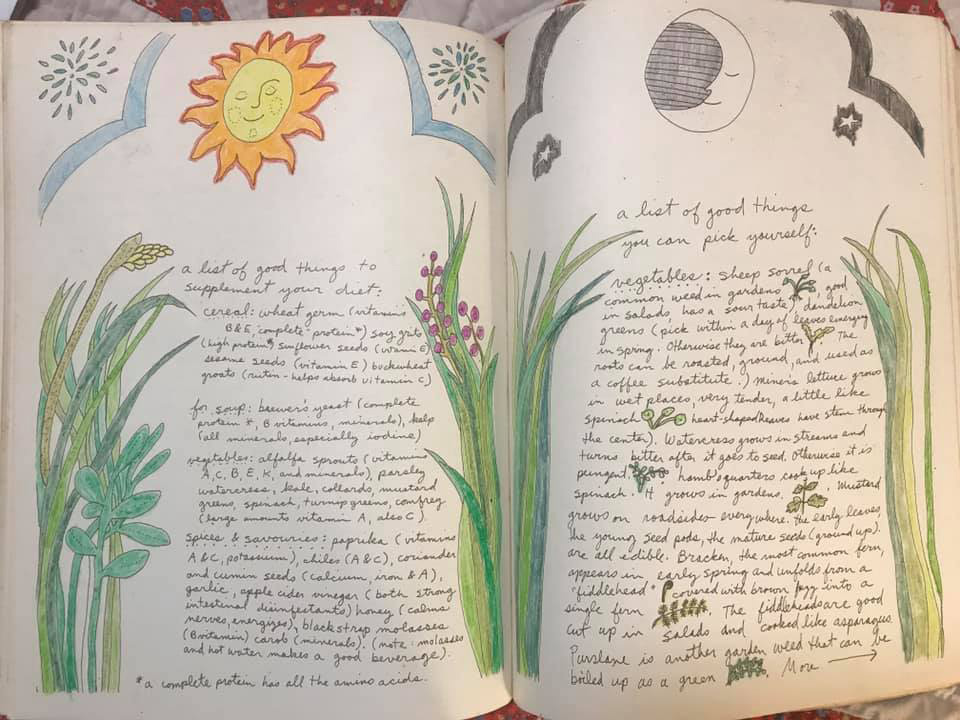 a list of good things to
supplement your diet:
cereal: wheat germ (vitamins
B & E, "complete protein"*) soy grits
(high protein*) sunflower seeds (vitamin E)
sesame seeds (vitamin E) buckwheat
groats (rutin - helps absorb vitamin C)
for soup: brewer's yeast (complete
protein *, B vitamins, minerals), kelp
(all minerals, especially iodine)
vegetables: alfalfa sprouts (vitamins
A, C, B, E, K, and minerals), parsley
watercress, kale, collards, mustard
greens, spinach, turnip greens, comfrey
(large amounts vitamin A, also C).
spices & savouries: paprika (vitamins
A & C, potassium), chiles (A & C), coriander
and cumin seeds (calcium, iron & A),
garlic, apple cider vinegar (both strong
intestinal disinfectants) honey (calms
nerves, energizes), blackstrap molasses
(B vitamin) carob (minerals). (note: molasses
and hot water makes a good beverage).
*a complete protein has all the amino acids.
a list of good things
you can pick yourself:
vegetables: sheep sorrel (a
common weed in gardens good
in salads, has a sour taste) dandelion
greens (pick within a day of leaves emerging
in spring. Otherwise they are bitter. The
roots can be roasted, ground, and used as
a coffee substitute.) miner's lettuce grows
in wet places, very tender, a little like
spinach heart-shaped leaves have stem through
the center). Watercress grows in streams and
turns bitter after it goes to seed. Otherwise it is
pungent. lamb's quarters cook up like
spinach. It grows in gardens. Mustard
grows on roadsides everywhere. the early leaves,
the young seed pods, the mature seeds (ground up).
are all edible. Bracken, the most common fern,
appears in early spring and unfolds from a
"fiddlehead" covered with brown fuzz into a
single fern. The fiddleheads are good
cut up in salads and cooked like asparagus.
Purslane is another garden weed that can be
boiled up as a green. More →